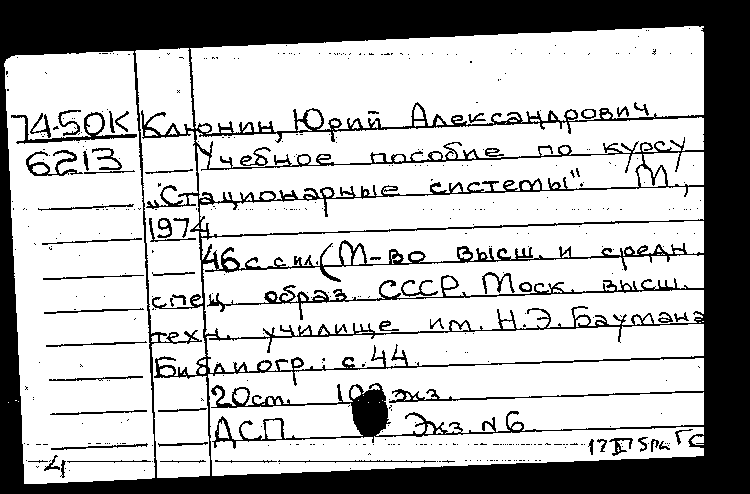 74-50К Клюнин, Юрий Александрович.
6213 Учебное пособие по курсу
„Стационарные системы". М.,
1974.
46 с. с ил. (М-во высш. и средн.
спец. образ. СССР. Моск. высш.
техн. училище им. Н.Э. Баумана
Библиогр.: с. 44.
20 см. экз.
ДСП. Экз. №6.
4